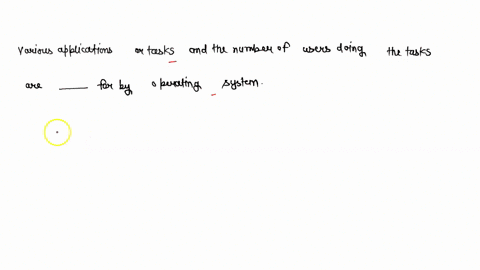 Various applications or tasks and the number of users doing the tasks
are ____ for by operating system.